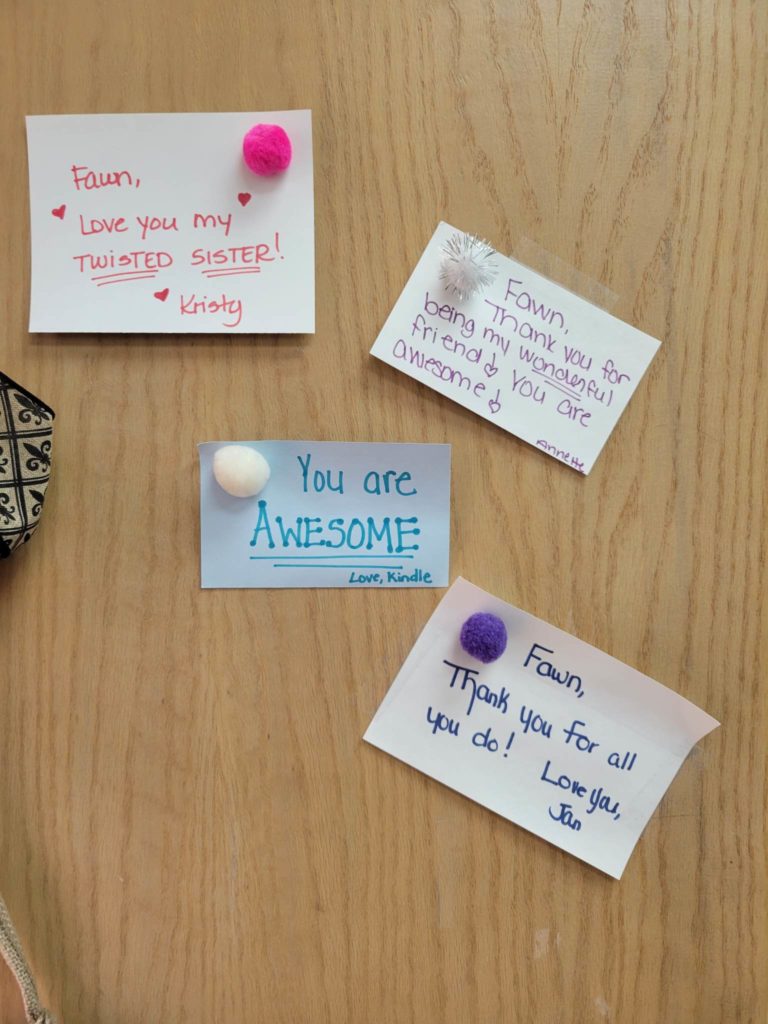 Fawn,
Love you my
TWISTED SISTER!
Kristy
Fawn,
Thank you for
being my wonderful
friend! You are
awesome!
Annette
You are
AWESOME
Love, Kindle
Fawn,
Thank you for all
you do!
Love you,
Jan